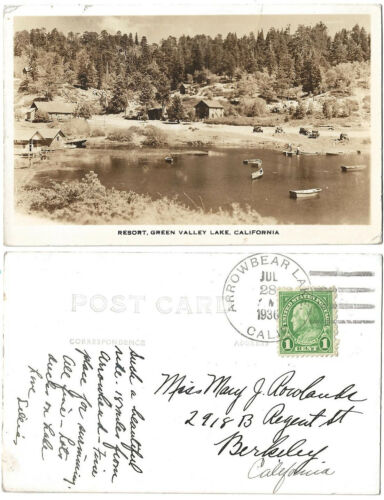 RESORT, GREEN VALLEY LAKE, CALIFORNIA
POST CARD
CORRESPONDENCE
ADDRESS
ARROWBEAR LAKE
JUL
28
1936
CALIF
UNITED STATES POSTAGE
1 CENT 1
Such a beautiful
ride. 18 miles from
Arrowhead - Fine
place for swimming.
All fine - Lots
ducks on Lake
Love
Miss Mary J. Rowlands
2918 B Regent St
Berkeley
California